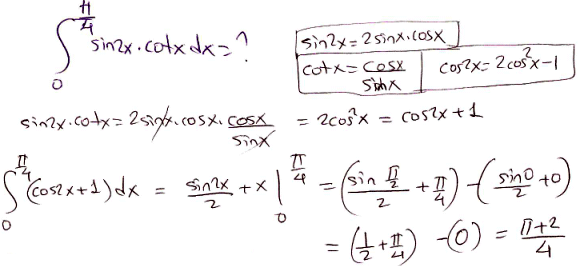 ∫₀^(π/4) sin2x·cotx dx = ?
sin2x = 2sinx.cosx
cotx = cosx/sinx
cos2x = 2cos²x-1
sin2x.cotx = 2sinx.cosx. cosx/sinx = 2cos²x = cos2x+1
∫₀^(π/4) (cos2x+1)dx = sin2x/2 + x |₀^(π/4) = (sin π/2 / 2 + π/4) - (sin0/2 + 0)
= (1/2 + π/4) - (0) = π+2/4